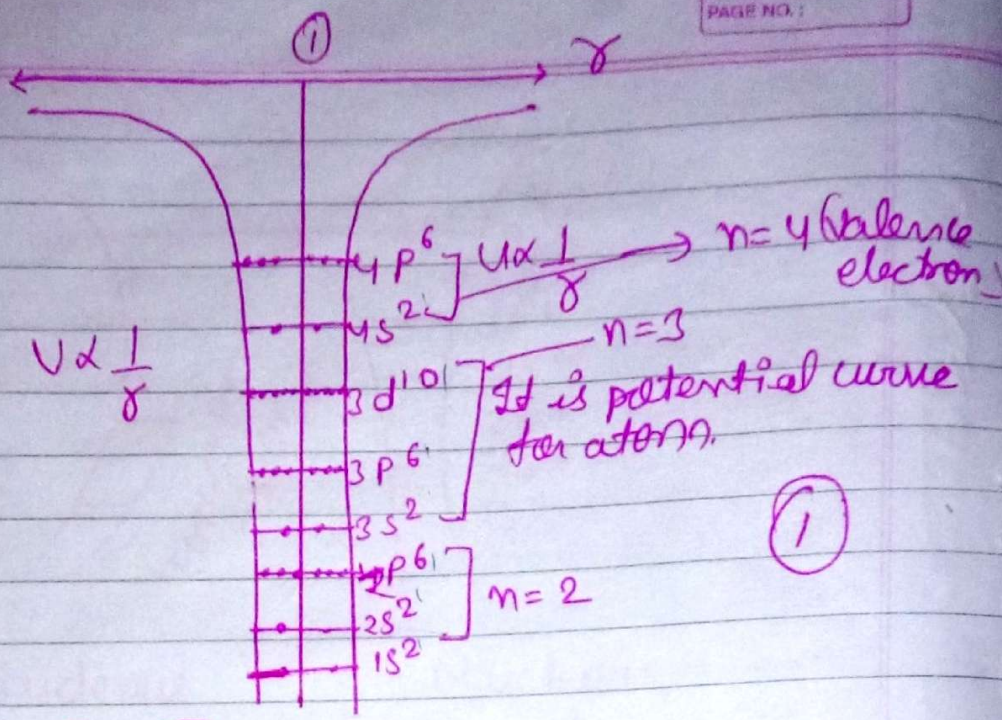 PAGE NO.:
①
r
4p⁶
U∝ 1/r
n=4 (valence electron)
4s²
U∝ 1/r
n=3
3d¹⁰
It is potential curve
for atom.
3p⁶
3s²
①
2p⁶
n=2
2s²
1s²